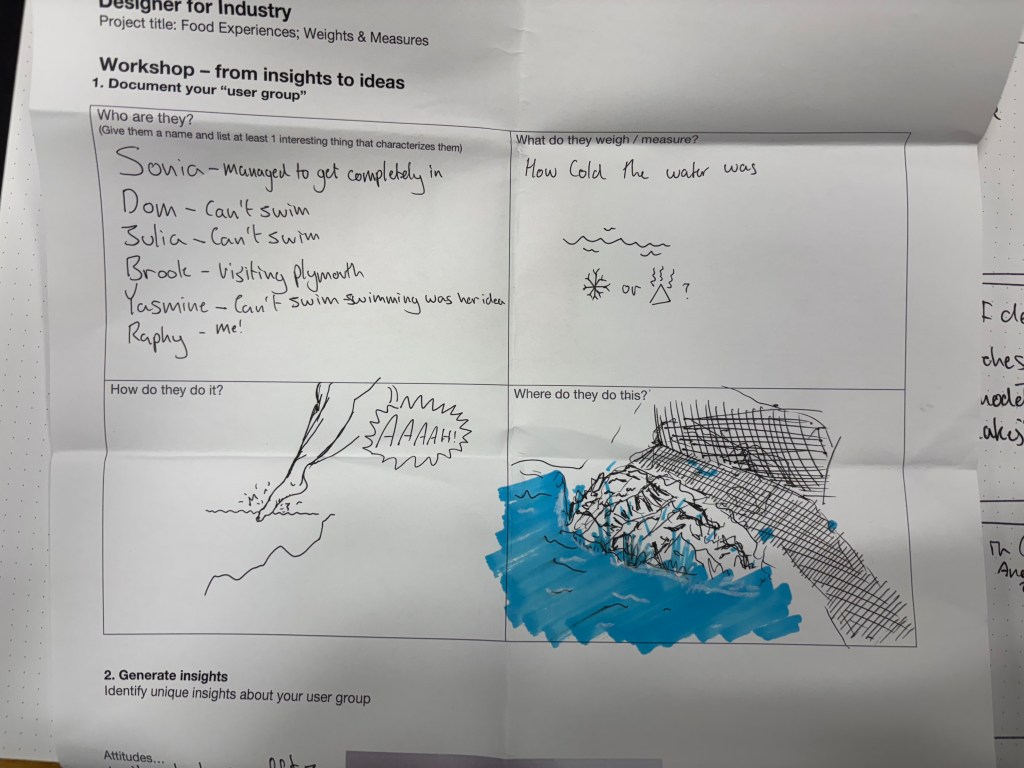 Designer for Industry
Project title: Food Experiences; Weights & Measures
Workshop – from insights to ideas
1. Document your “user group”
Who are they?
(Give them a name and list at least 1 interesting thing that characterizes them)
Sonia – managed to get completely in
Dom – Can't swim
Julia – Can't swim
Brook – Visiting plymouth
Yasmine – Can't swim swimming was her idea
Raphy – me!
What do they weigh / measure?
How Cold the water was
or ?
How do they do it?
AAAAH!
Where do they do this?
2. Generate insights
Identify unique insights about your user group
Attitudes...